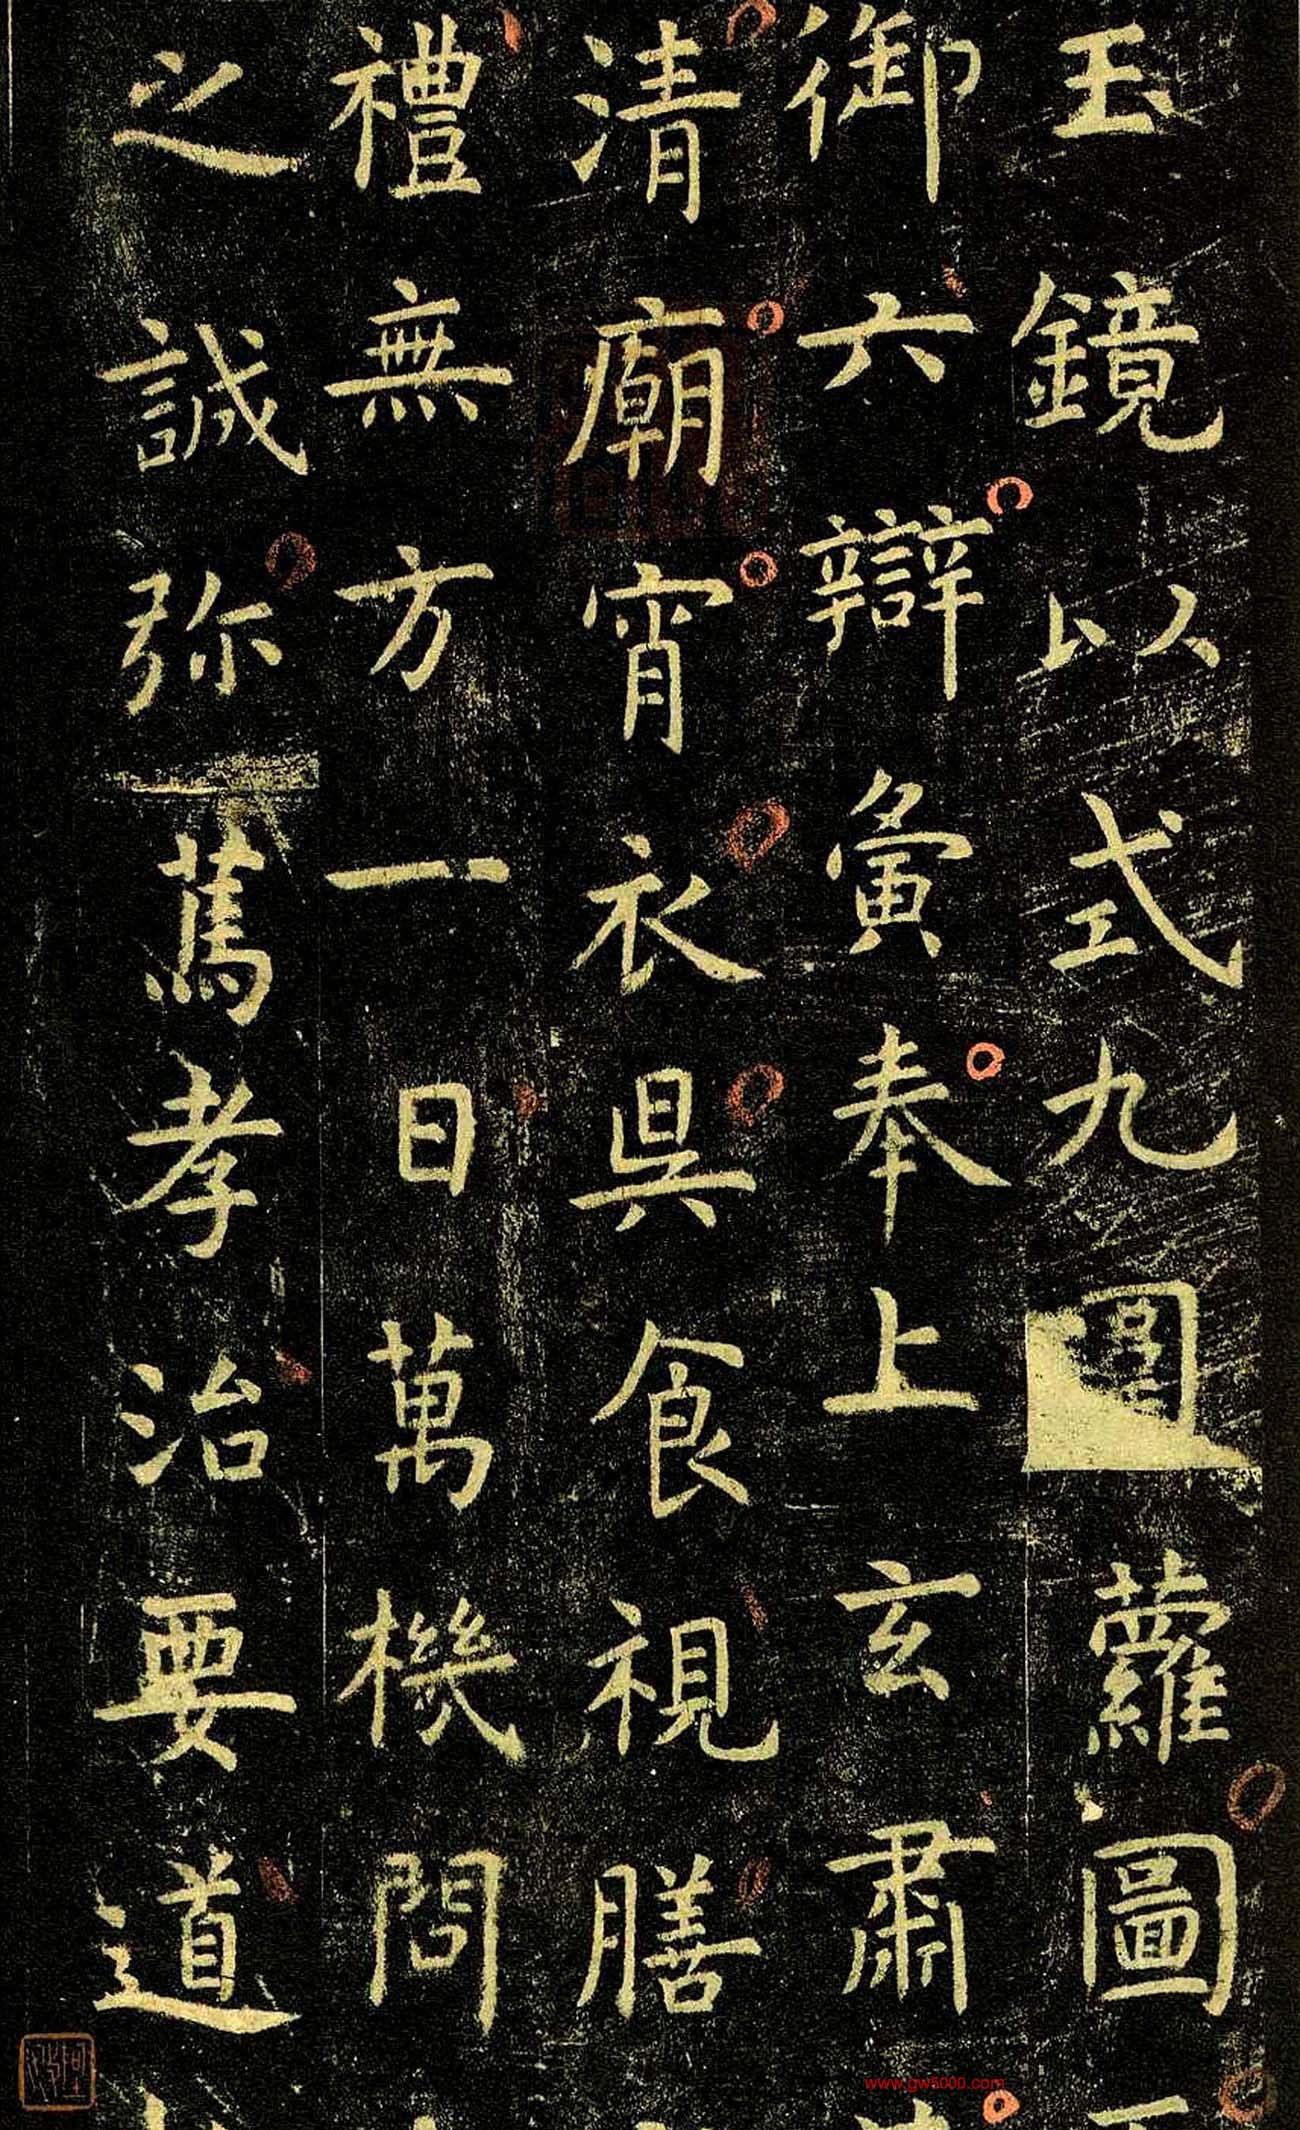 玉鏡以式九圍蘿圖
御六辯彙奉上玄肅
清廟宵衣昃食視膳
禮無方一日萬機問
之誠弥篤孝治要道
www.gw5000.com